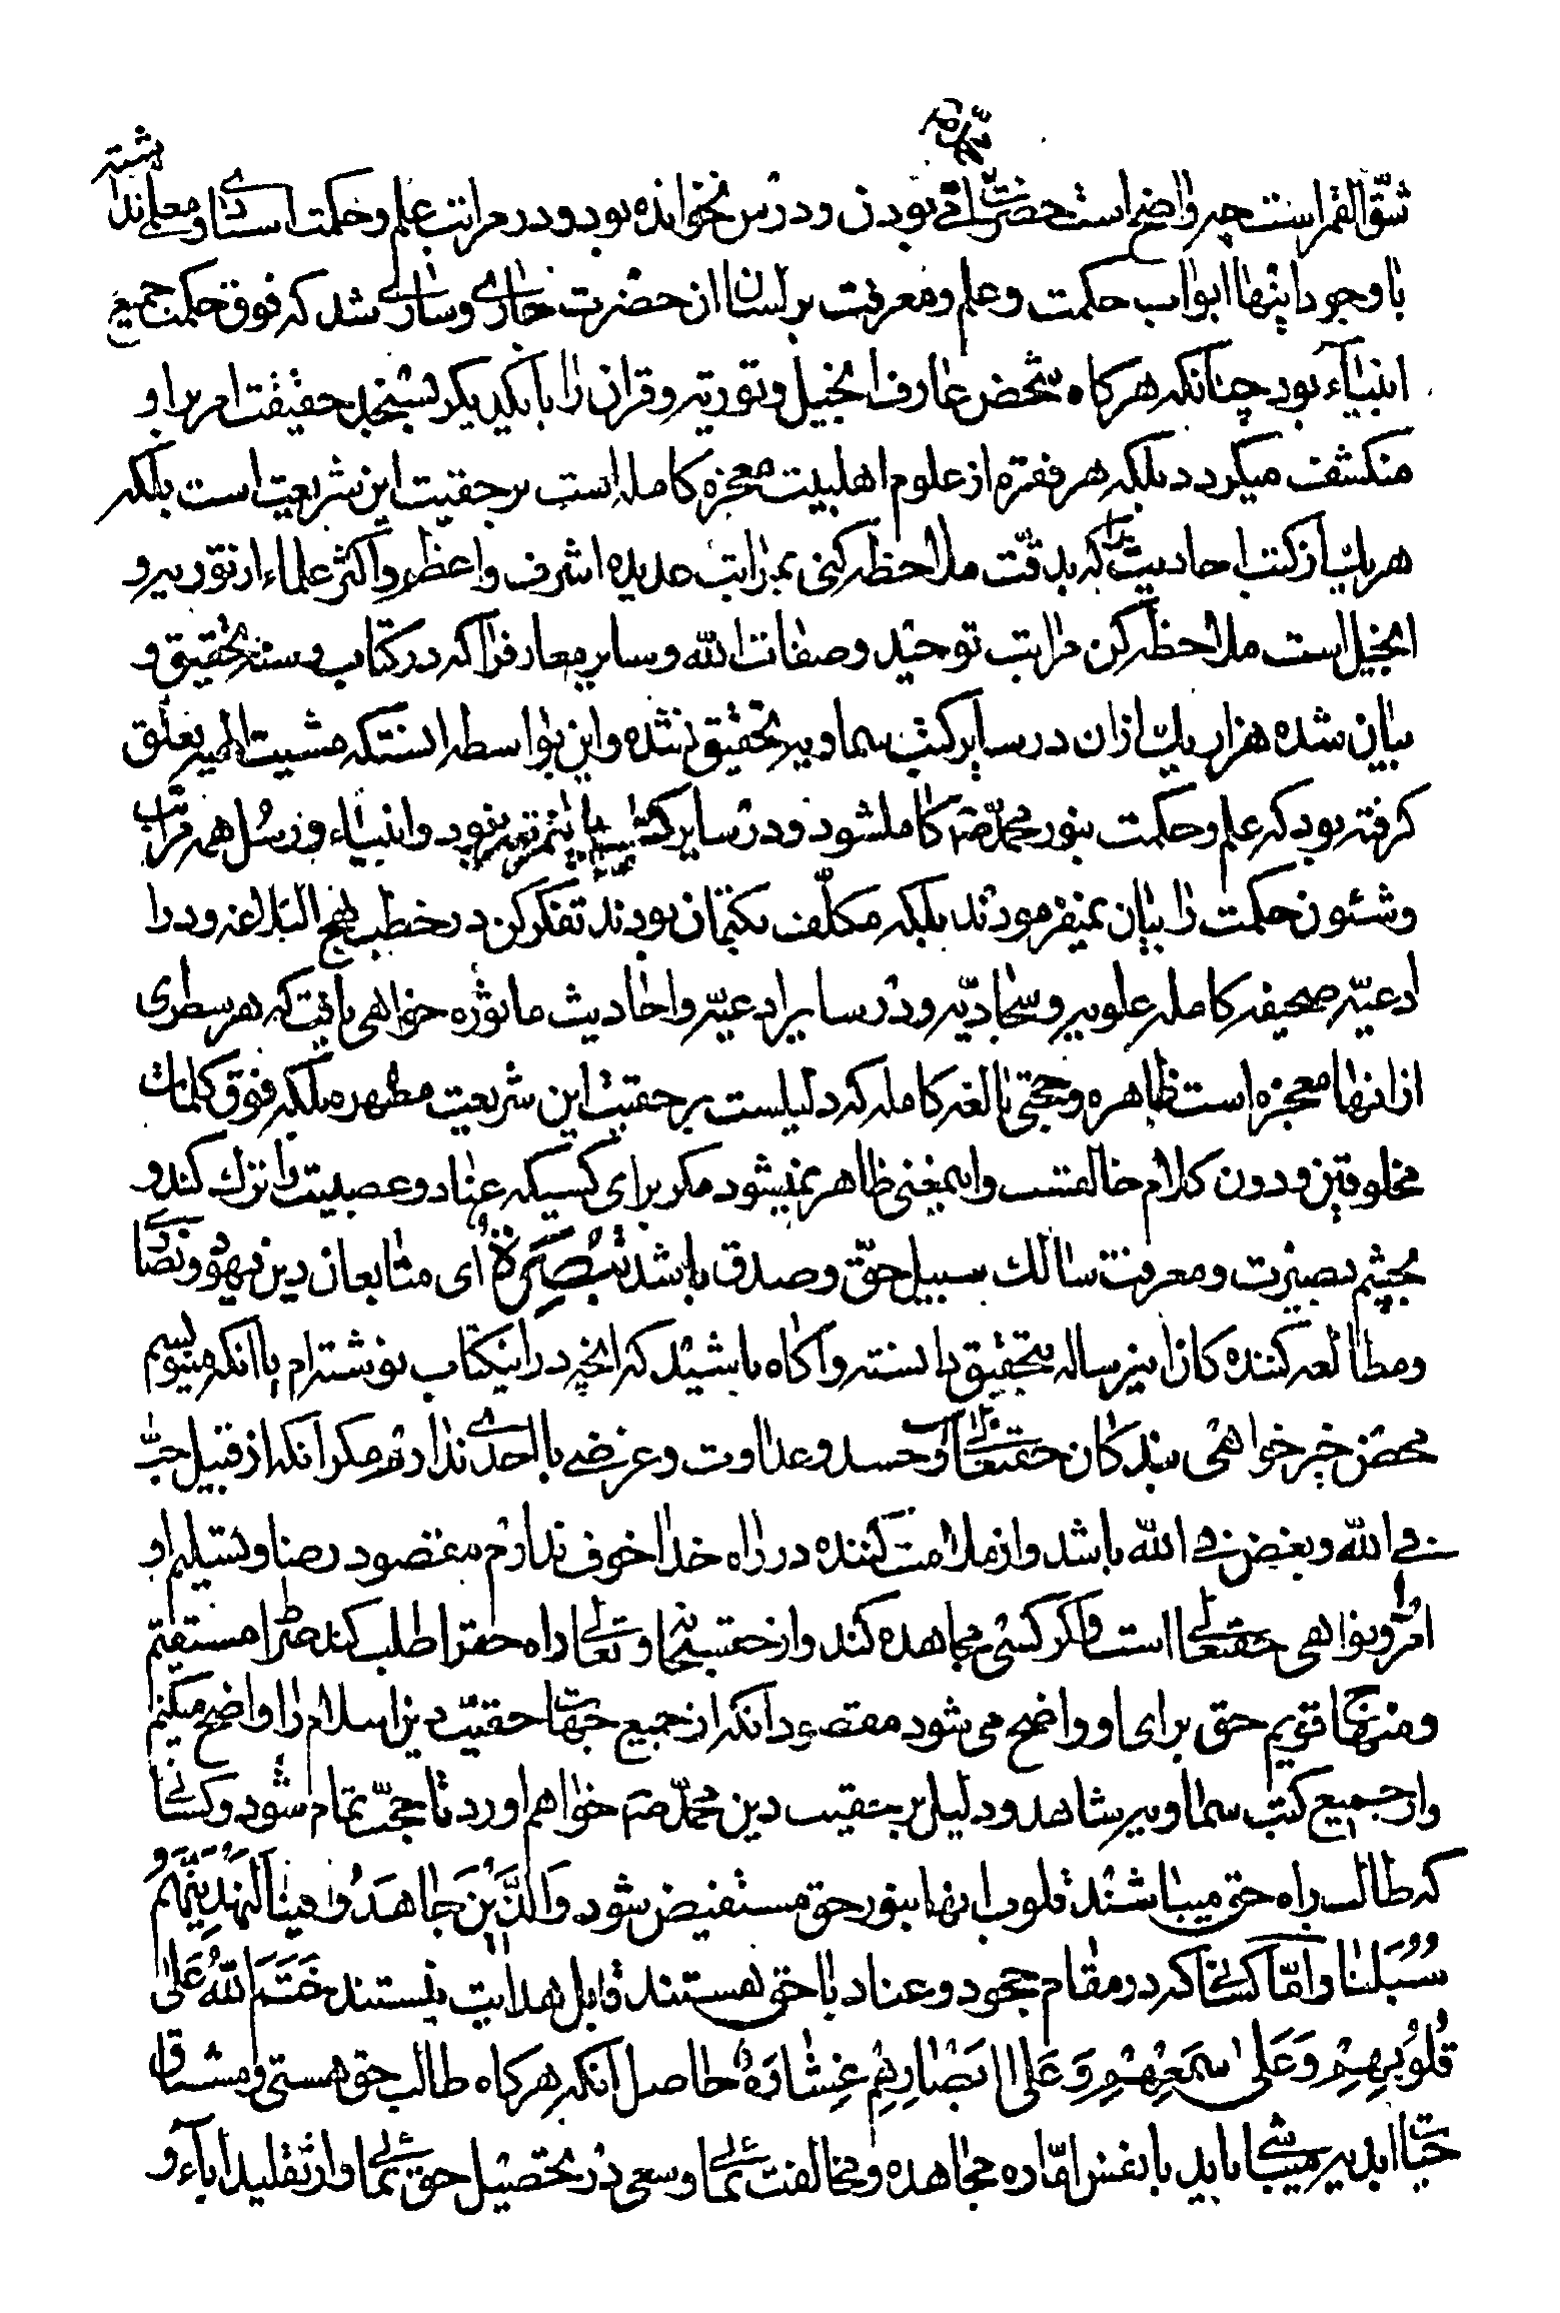 شقّ القمر است چه واضح است حضرت امّی بودن و درس نخوانده بود و در مراتب علم و حکمت استادی و معلمی نداشته
با وجود اینها ابواب حکمت و علم و معرفت بر لسان انحضرت جاری و ساری شد که فوق حکمت جمیع
انبیاء بود چنانکه هرکاه شخص عارف انجیل و توریه و قران را با یکدیکر بسنجد حقیقت امر بر او
منکشف میکردد بلکه هر فقره از علوم اهلبیت معجزه کامله است بر حقیت این شریعت است بلکه
هر یک از کتب احادیث را که بدقّت ملاحظه کنی بمراتب عدیده اشرف و اعظم و اکثر علماء از توریه و
انجیل است ملاحظه کن مراتب توحید و صفات الله و سایر معارفرا که در کتاب و سنه تحقیق و
بیان شده هزار یک از ان در سایر کتب سماویه تحقیق نشده و این بواسطه انستکه مشیت الهیه تعلق
کرفته بود که علم و حکمت بنور محمّد صم کاملشود و در سایر کتب باینمرتبه نبود و انبیاء و رسل همه مراتب
و شئون حکمت را بیان نمیفرمودند بلکه مکلّف بکتمان بودند تفکر کن در خطب نهج البلاغه و در ا
ادعیّه صحیفه کامله علویه و سجّادیّه و در سایر ادعیّه و احادیث ماثوره خواهی یافت که هر سطری
از انها معجزه است ظاهره و حجتی بالغه کامله که دلیلست بر حقیت این شریعت مطهره بلکه فوق کلمات
مخلوقین و دون کلام خالقست و اینمعنی ظاهر نمیشود مکر برای کسیکه عناد و عصبیت را ترک کند و
بچشم بصیرت و معرفت سالک سبیل حقّ و صدق باشد تبصرة ای متابعان دین یهود و نصاری
و مطالعه کننده کان اینرساله بتحقیق دانسته و آکاه باشید که انچه در اینکتاب نوشته ام یا انکه مینویسم
محض خیر خواهی بندکان حقتعالی است و حسد و عداوت و غرضی با احدی ندارم مکر انکه از قبیل حبّ
فی الله و بغض فی الله باشد و از ملامت کننده در راه خدا خوف ندارم مقصود رضا و تسلیم او
امر و نواهی حقتعالی است و اکر کسی مجاهده کند و از حقسبحانه و تعالی راه حقرا طلب کند صراط مستقیم
و منهاج قویم حق برای او واضح می شود مقصود انکه از جمیع جهات حقیّت دین اسلام را واضح میکنم
و از جمیع کتب سماویه شاهد و دلیل بر حقیت دین محمّد صم خواهم اورد تا حجّت تمام شود و کسانی
که طالب راه حق میباشند قلوب انها بنور حق مستفیض شود وَالَّذینَ جاهَدُوا فینا لَنَهْدِیَنَّهُمْ
سُبُلَنا و امّا کسانی که در مقام جحود و عناد با حق هستند قابل هدایت نیستند خَتَمَ اللّهُ عَلی
قُلُوبِهِمْ وَعَلی سَمْعِهِمْ وَعَلی اَبْصارِهِمْ غِشاوَةٌ حاصل آنکه هرکاه طالب حق هستی و مشتاق
حیات ابدیه میباشی باید با نفس امّاره مجاهده و مخالفت نمائی و سعی در تحصیل حق نمائی و از تقلید اباء و